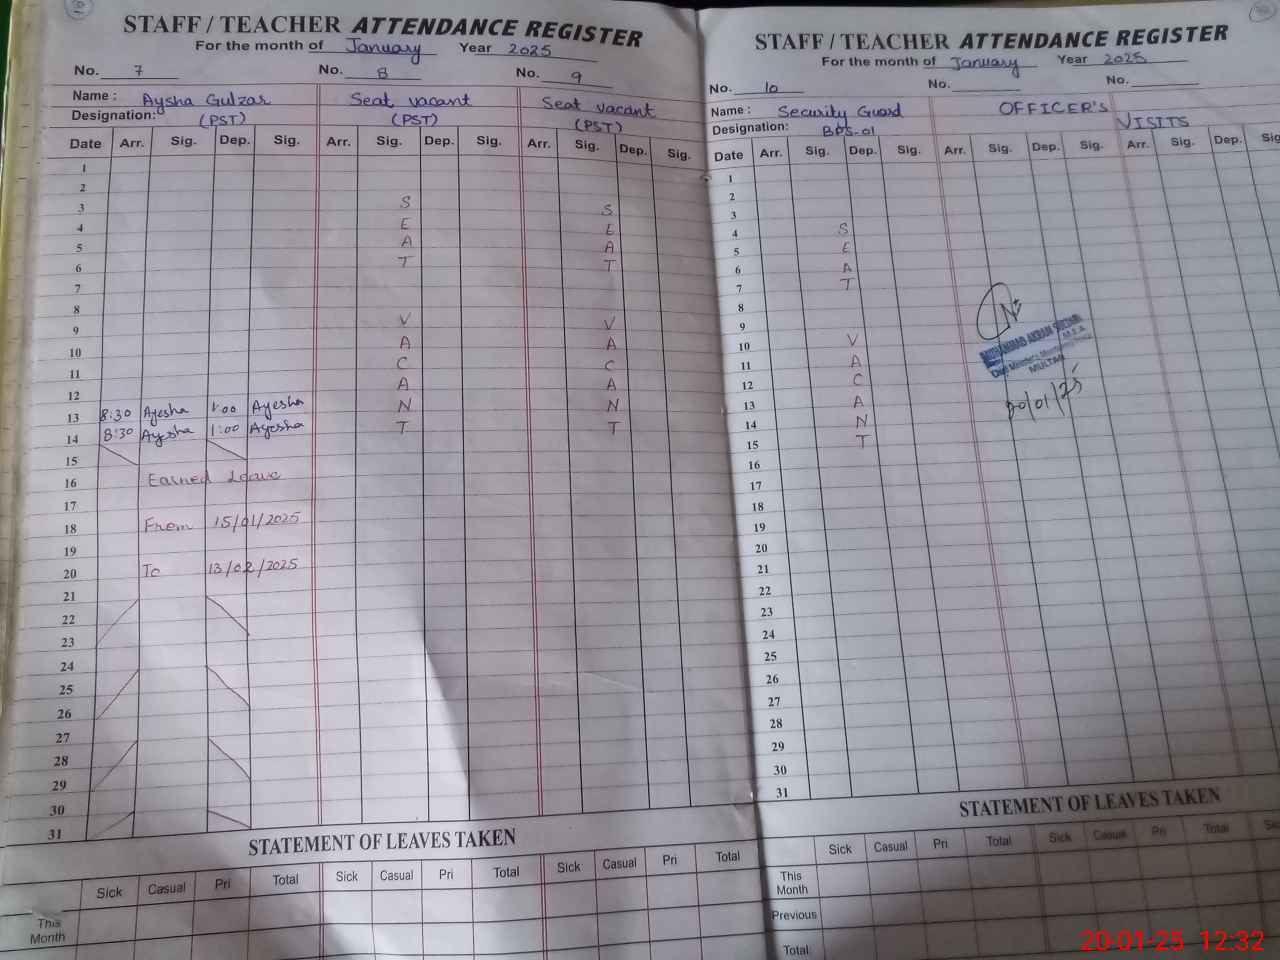 STAFF / TEACHER ATTENDANCE REGISTER
For the month of January Year 2025
No. 7 No. 8 No. 9
Name : Aysha Gulzar Seat vacant Seat vacant
Designation: (PST) (PST) (PST)
Date Arr. Sig. Dep. Sig. Arr. Sig. Dep. Sig. Arr. Sig. Dep. Sig.
1
2
3 S S
4 E E
5 A A
6 T T
7
8
9 V V
10 A A
11 C C
12 A A
13 8:30 Ayesha 1:00 Ayesha N N
14 8:30 Ayesha 1:00 Ayesha T T
15
16 Earned Leave
17
18 From 15/01/2025
19
20 To 13/02/2025
21
22
23
24
25
26
27
28
29
30
31
STATEMENT OF LEAVES TAKEN
Sick Casual Pri Total Sick Casual Pri Total Sick Casual Pri Total
This Month
STAFF / TEACHER ATTENDANCE REGISTER
For the month of January Year 2025
No. 10 No. No.
Name : Security Guard OFFICER'S
Designation: BPS-01 VISITS
Date Arr. Sig. Dep. Sig. Arr. Sig. Dep. Sig. Arr. Sig. Dep. Sig
1
2
3
4 S
5 E
6 A
7 T
8
9
10 V
11 A
12 C
13 A
14 N
15 T
16
17
18
19
20
21
22
23
24
25
26
27
28
29
30
31
MUHAMMAD AKRAM
M.E.A
MULTAN
20/01/25
STATEMENT OF LEAVES TAKEN
Sick Casual Pri Total Sick Casual Pri Total
This Month
Previous
Total
20-01-25 12:32